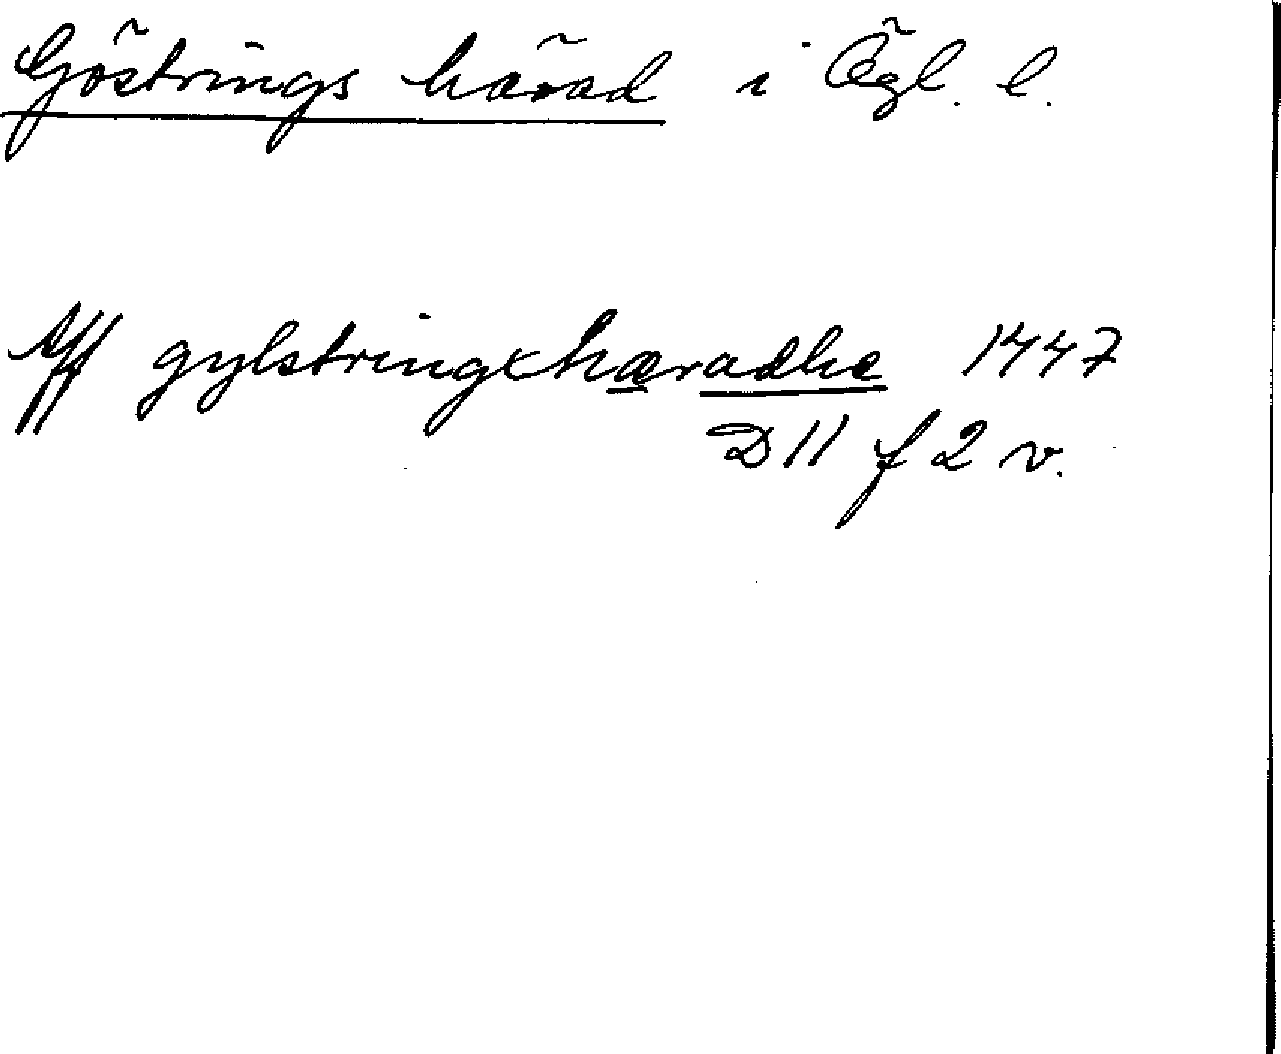 Göstrings härad i Ögl. l.
Aff gylstringxhæradhe 1447
D 11 f 2 v.